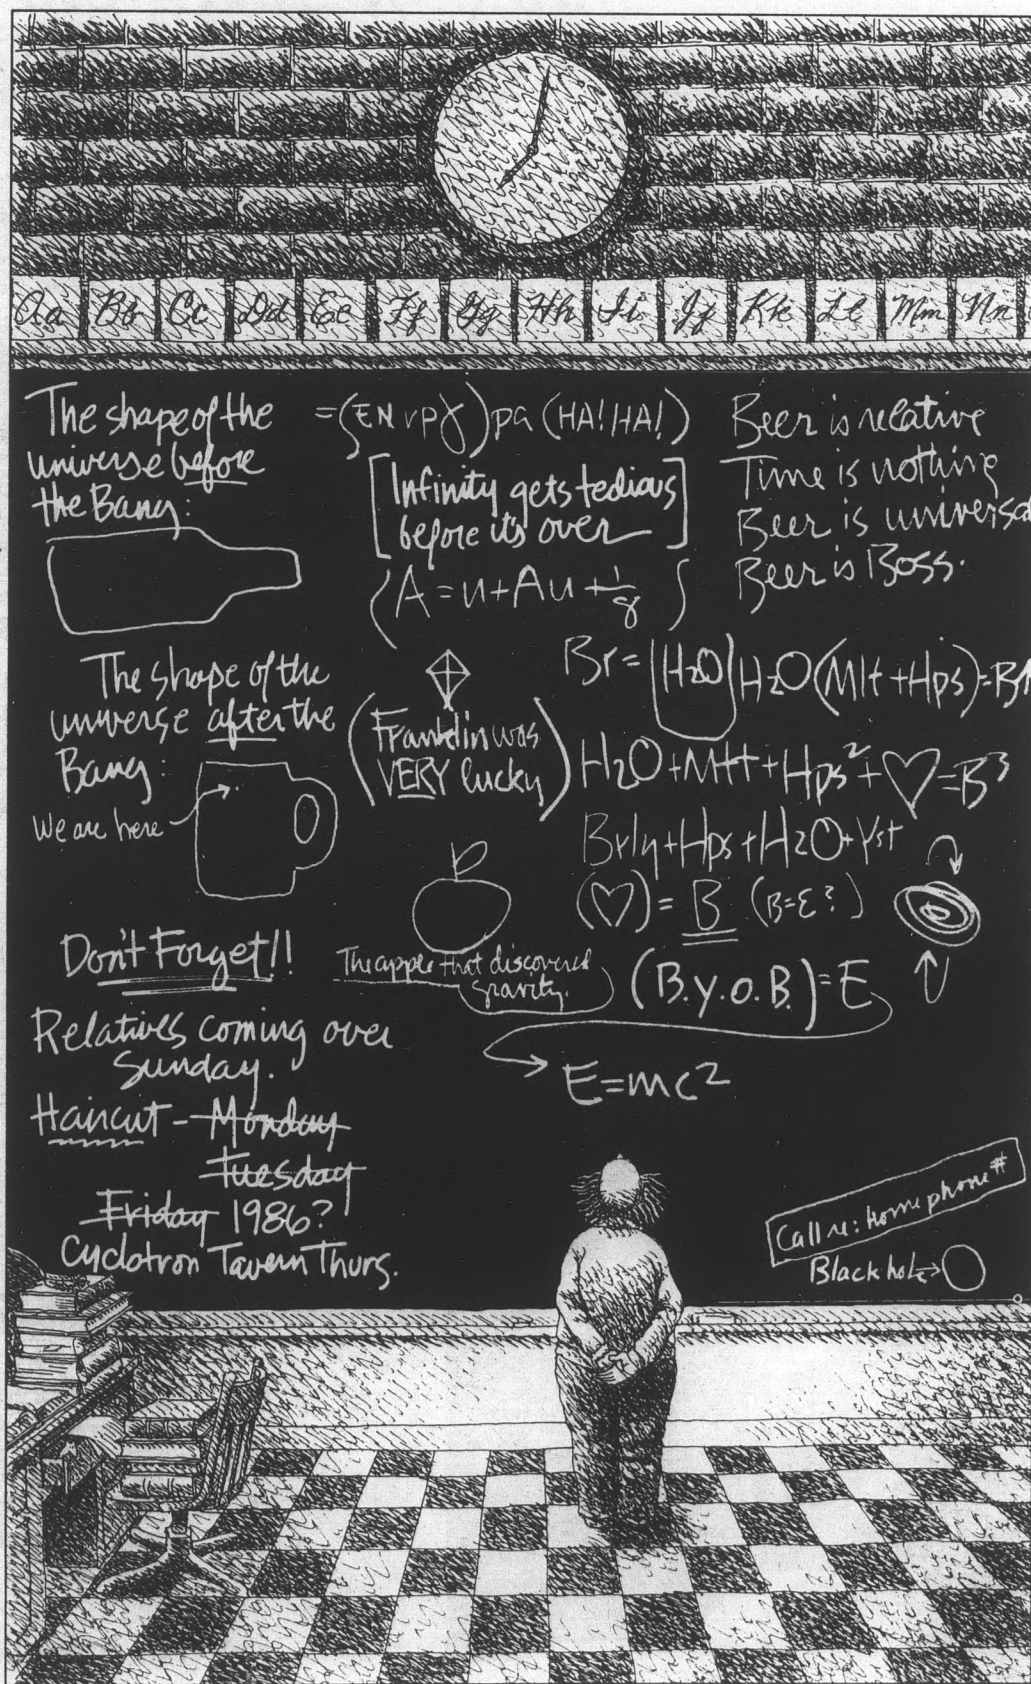 Aa Bb Cc Dd Ee Ff Gg Hh Ii Jj Kk Ll Mm Nn
The shape of the
universe before
the Bang:
The shape of the
universe after the
Bang:
We are here
Don't Forget!!
Relatives coming over
Sunday.
Haircut - Monday
Tuesday
Friday 1986?
Cyclotron Tavern Thurs.
(HA! HA!)
[Infinity gets tedious
before it's over]
A = u + Au + 1/8
(Franklin was
VERY lucky)
The apple that discovered
gravity.
Beer is relative
Time is nothing
Beer is universal
Beer is Boss.
Br = (H2O) H2O (Mlt + Hps) = Br
H2O + Mlt + Hps² + ♡ = B³
Brly + Hps + H2O + Yst
(♡) = B (B=E?)
(B.y.o.B.) = E
E = mc²
Call re: home phone #
Black hole →